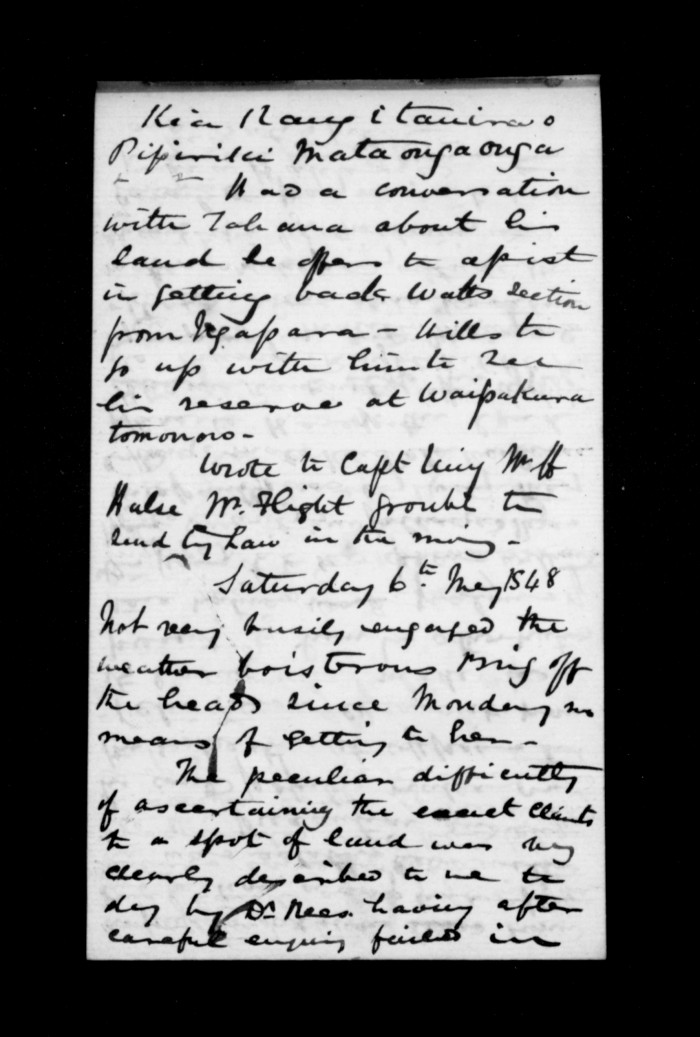 Kia Rangitauira o
Pipiriki Mataongaonga
Had a conversation
with Tahana about his
land he offers to assist
in getting back Watts section
from Ngapara - Wills to
go up with him to see
his reserve at Waipakura
tomorrow -
Wrote to Capt King Mr H
Halse Mr. Flight
send by Law in the morng -
Saturday 6th May 1848
Not very busily engaged the
weather boisterous Brig off
the heads since Monday no
means of getting to her -
The peculiar difficulty
of ascertaining the exact claimts
to a spot of land was very
clearly described to me to
day by Dr. Rees. having after
careful enquiry failed in